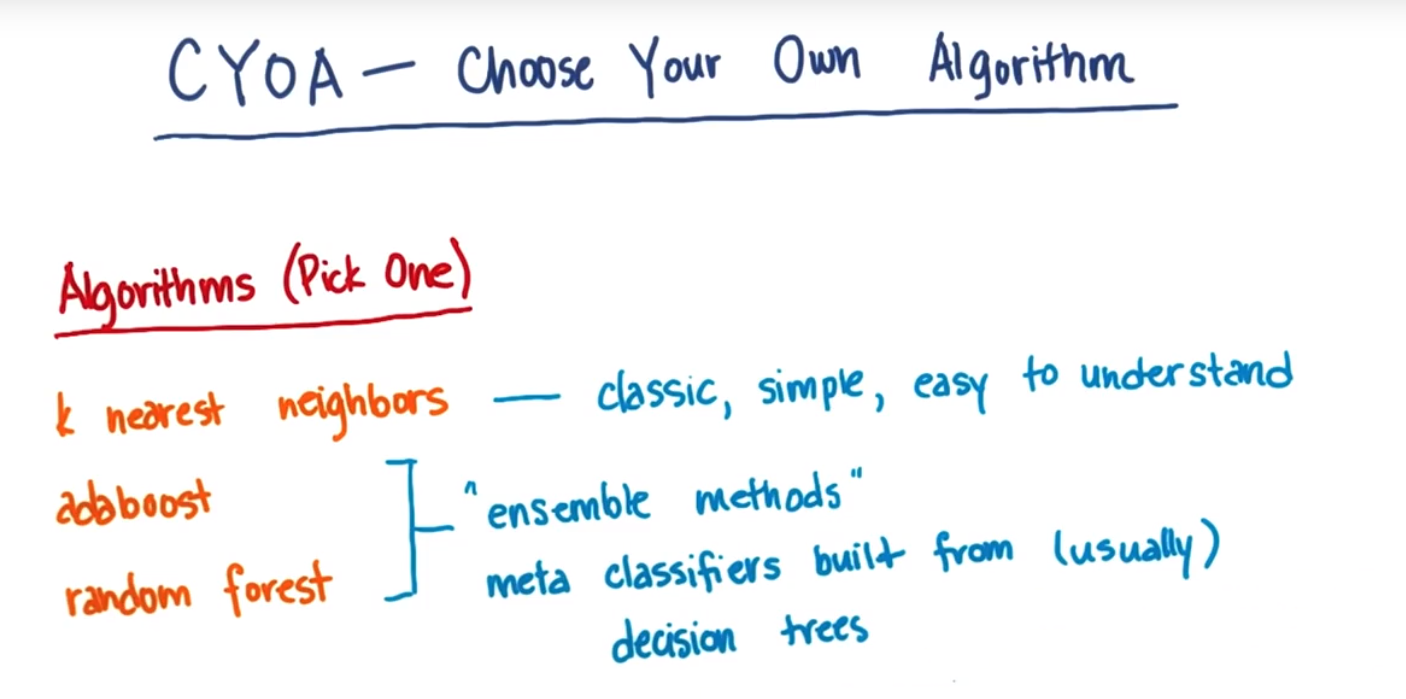 CYOA — Choose Your Own Algorithm
Algorithms (Pick One)
k nearest neighbors — classic, simple, easy to understand
adaboost
random forest
"ensemble methods"
meta classifiers built from (usually)
decision trees